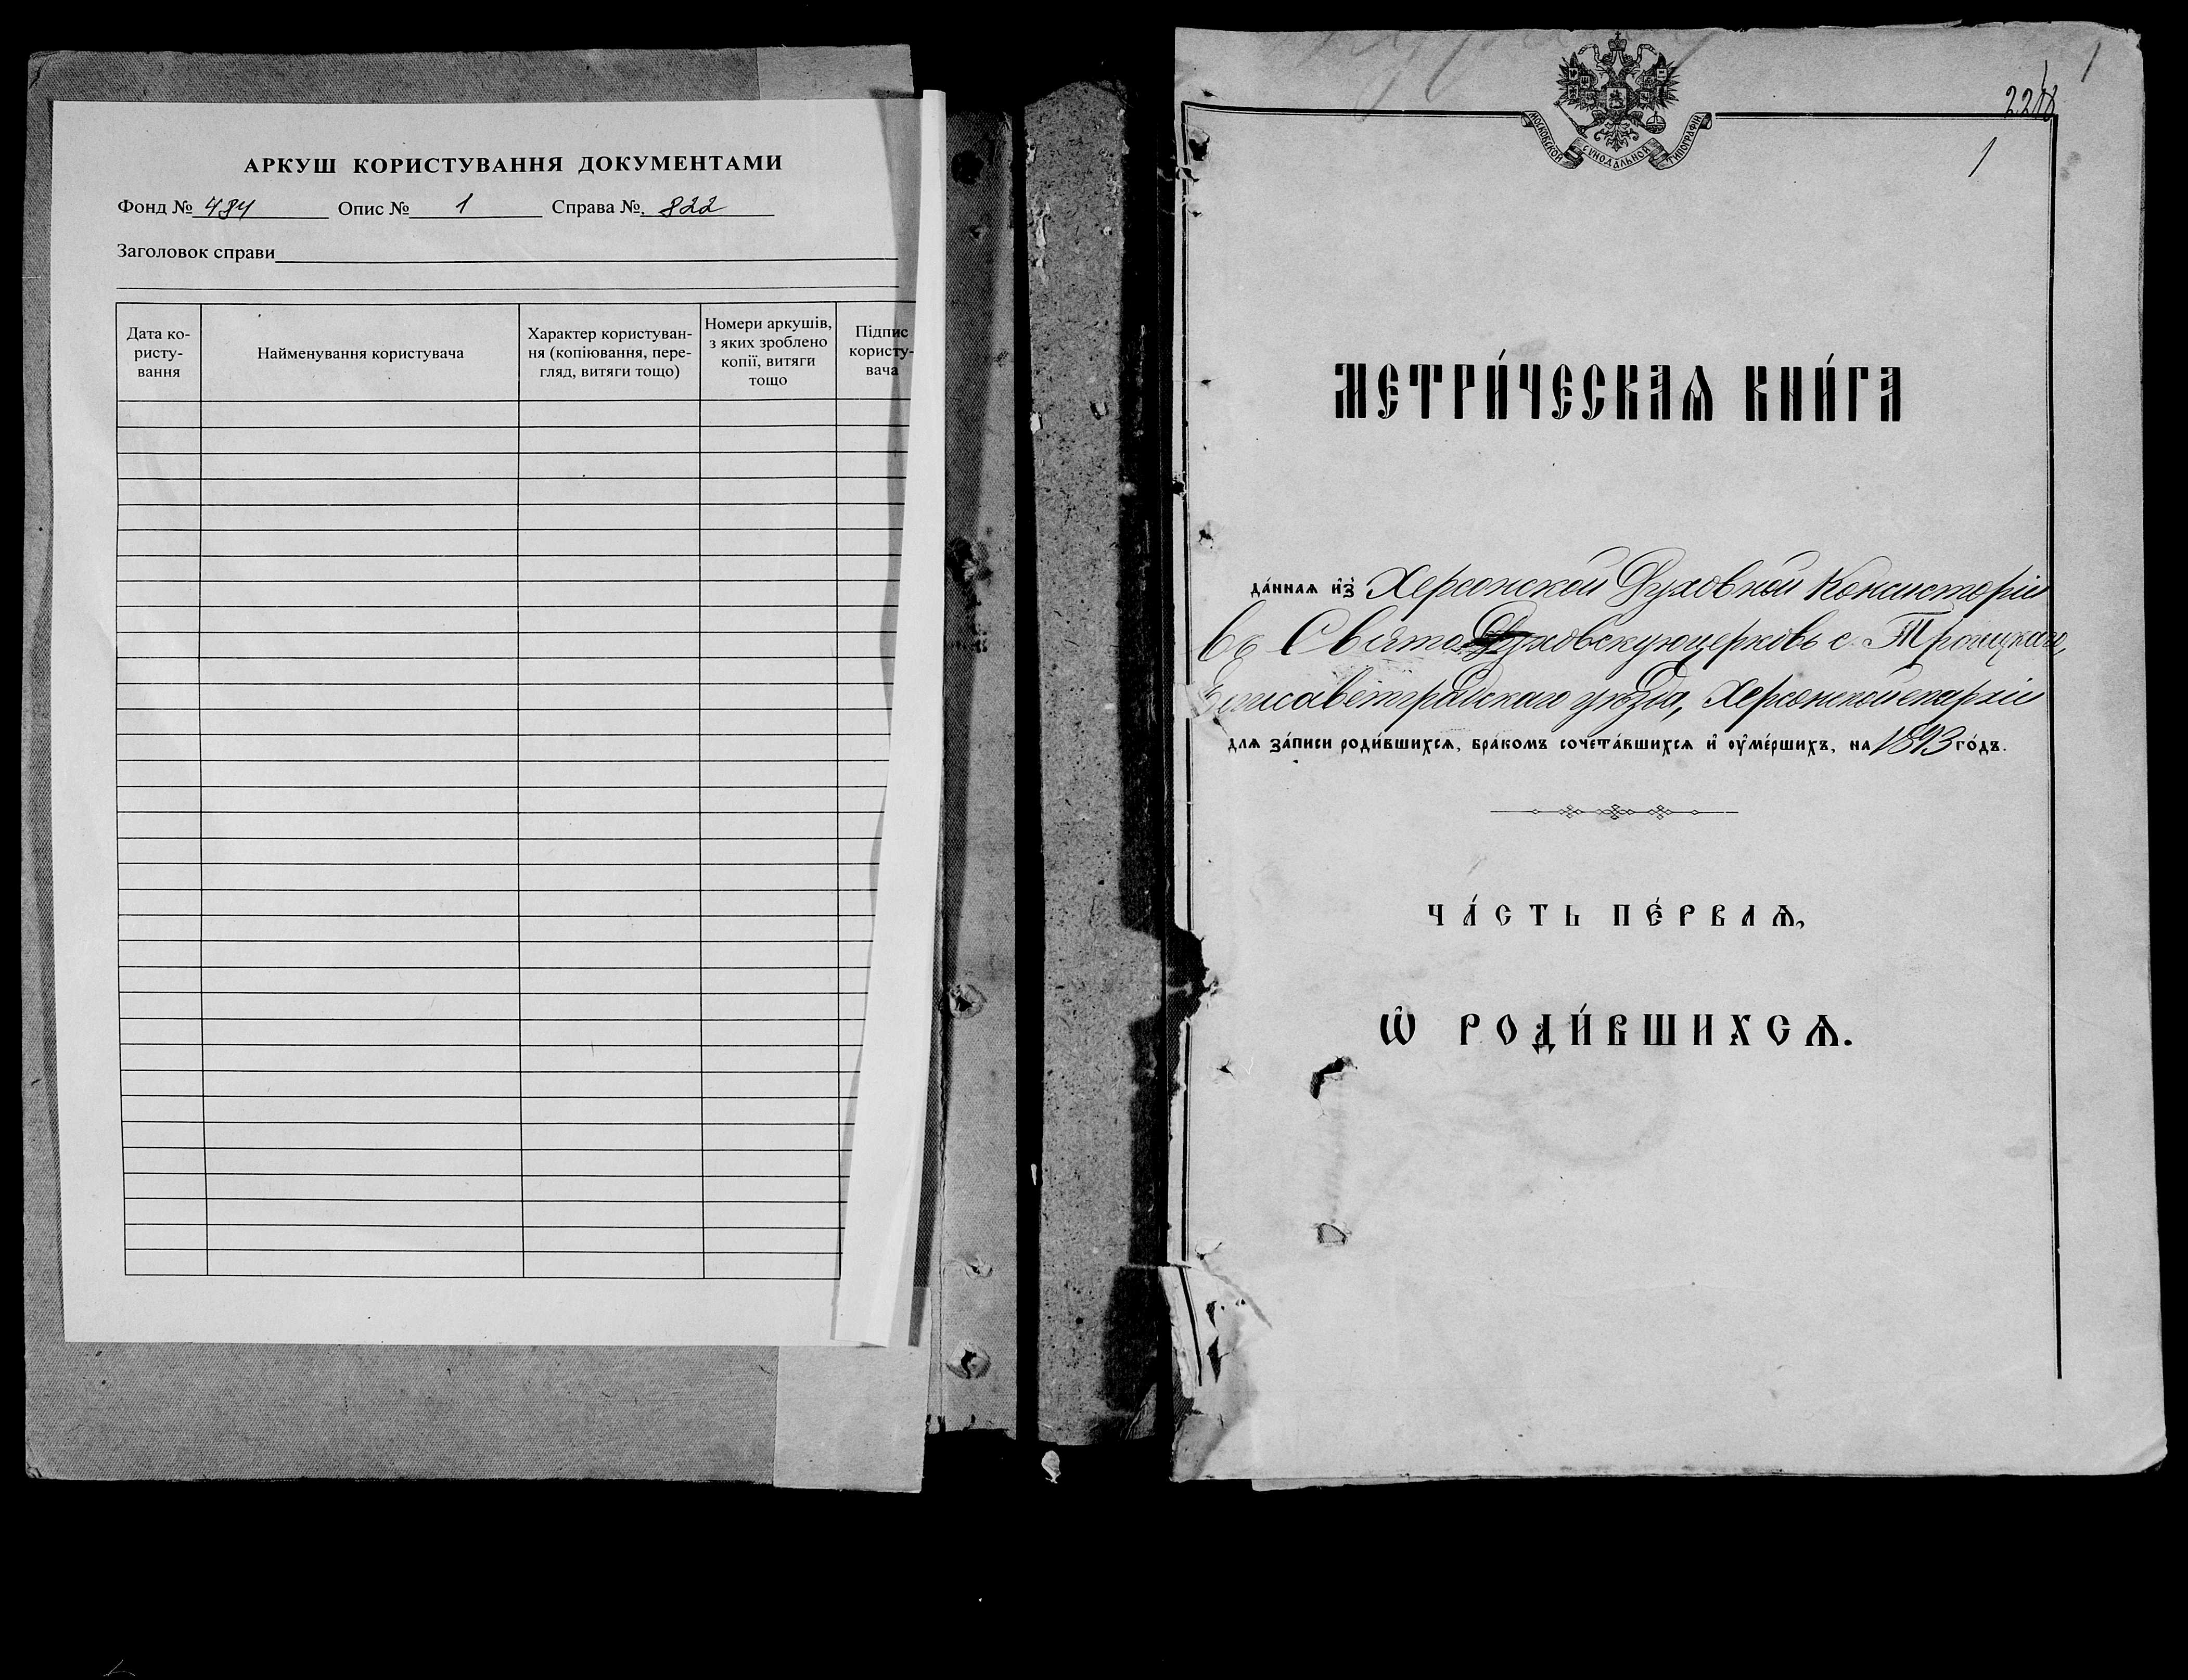 АРКУШ КОРИСТУВАННЯ ДОКУМЕНТАМИ
Фонд № 484 Опис № 1 Справа № 822
Заголовок справи
Дата ко-
ристу-
вання
Найменування користувача
Характер користуван-
ня (копіювання, пере-
гляд, витяги тощо)
Номери аркушів,
з яких зроблено
копії, витяги
тощо
Підпис
користу-
вача
1
1
МОСКОВСКОЙ СУНОДАЛЬНОЙ ТИПОГРАФІИ
МЕТРИ́ЧЕСКАѦ КНИ́ГА
да́ннаѧ и҆з̾ Херсонской Духовной Консисторіи
въ Свято Духовскую церковь с. Троицкаго,
Елисаветградскаго уѣзда, Херсонской епархіи
длѧ за́писи роди́вшихсѧ, бра́комъ сочета́вшихсѧ и҆ ᲂу҆ме́ршихъ, на 1893 го́дъ.
ЧА́СТЬ ПЕ́РВАѦ,
Ѽ РОДИ́ВШИХСѦ.